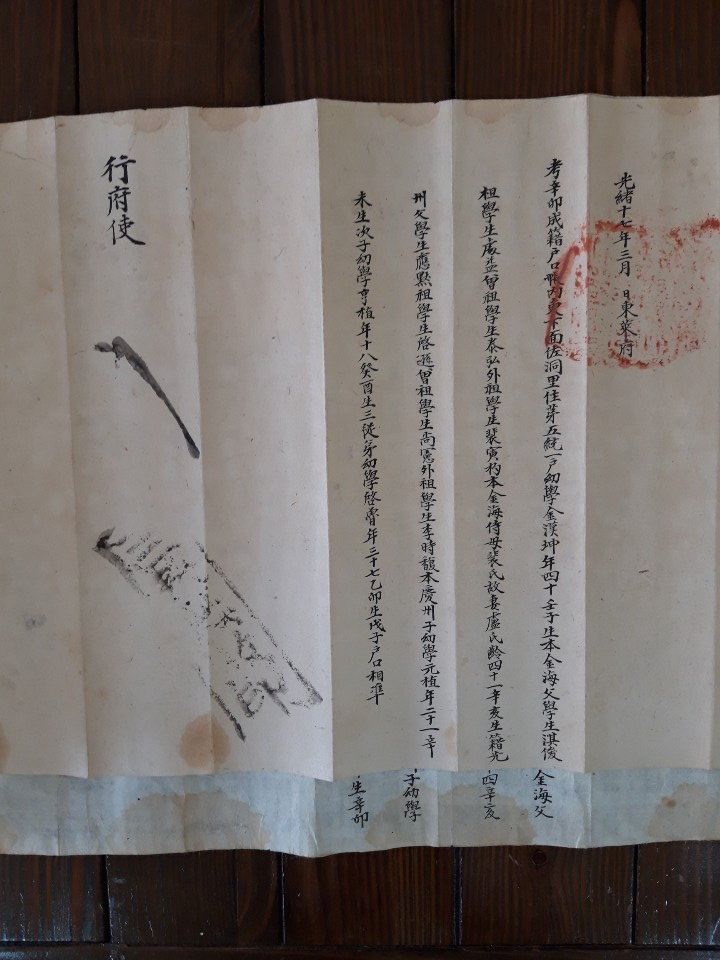 光緖十七年三月 日東萊府
考辛卯成籍戶口帳內東下面佐洞里住第五統一戶幼學金漢坤年四十壬子生本金海父學生淇俊
祖學生處孟曾祖學生泰弘外祖學生裴寅杓本金海侍母裴氏故妻盧氏齡四十一辛亥生籍光
州父學生應點祖學生啓遜曾祖學生尚憲外祖學生李時馥本慶州子幼學元植年二十一辛
未生次子幼學亨植年十八癸酉生三從弟幼學啓魯年三十七乙卯生戊子戶口相準
行府使
金海父
四辛亥
子幼學
生辛卯